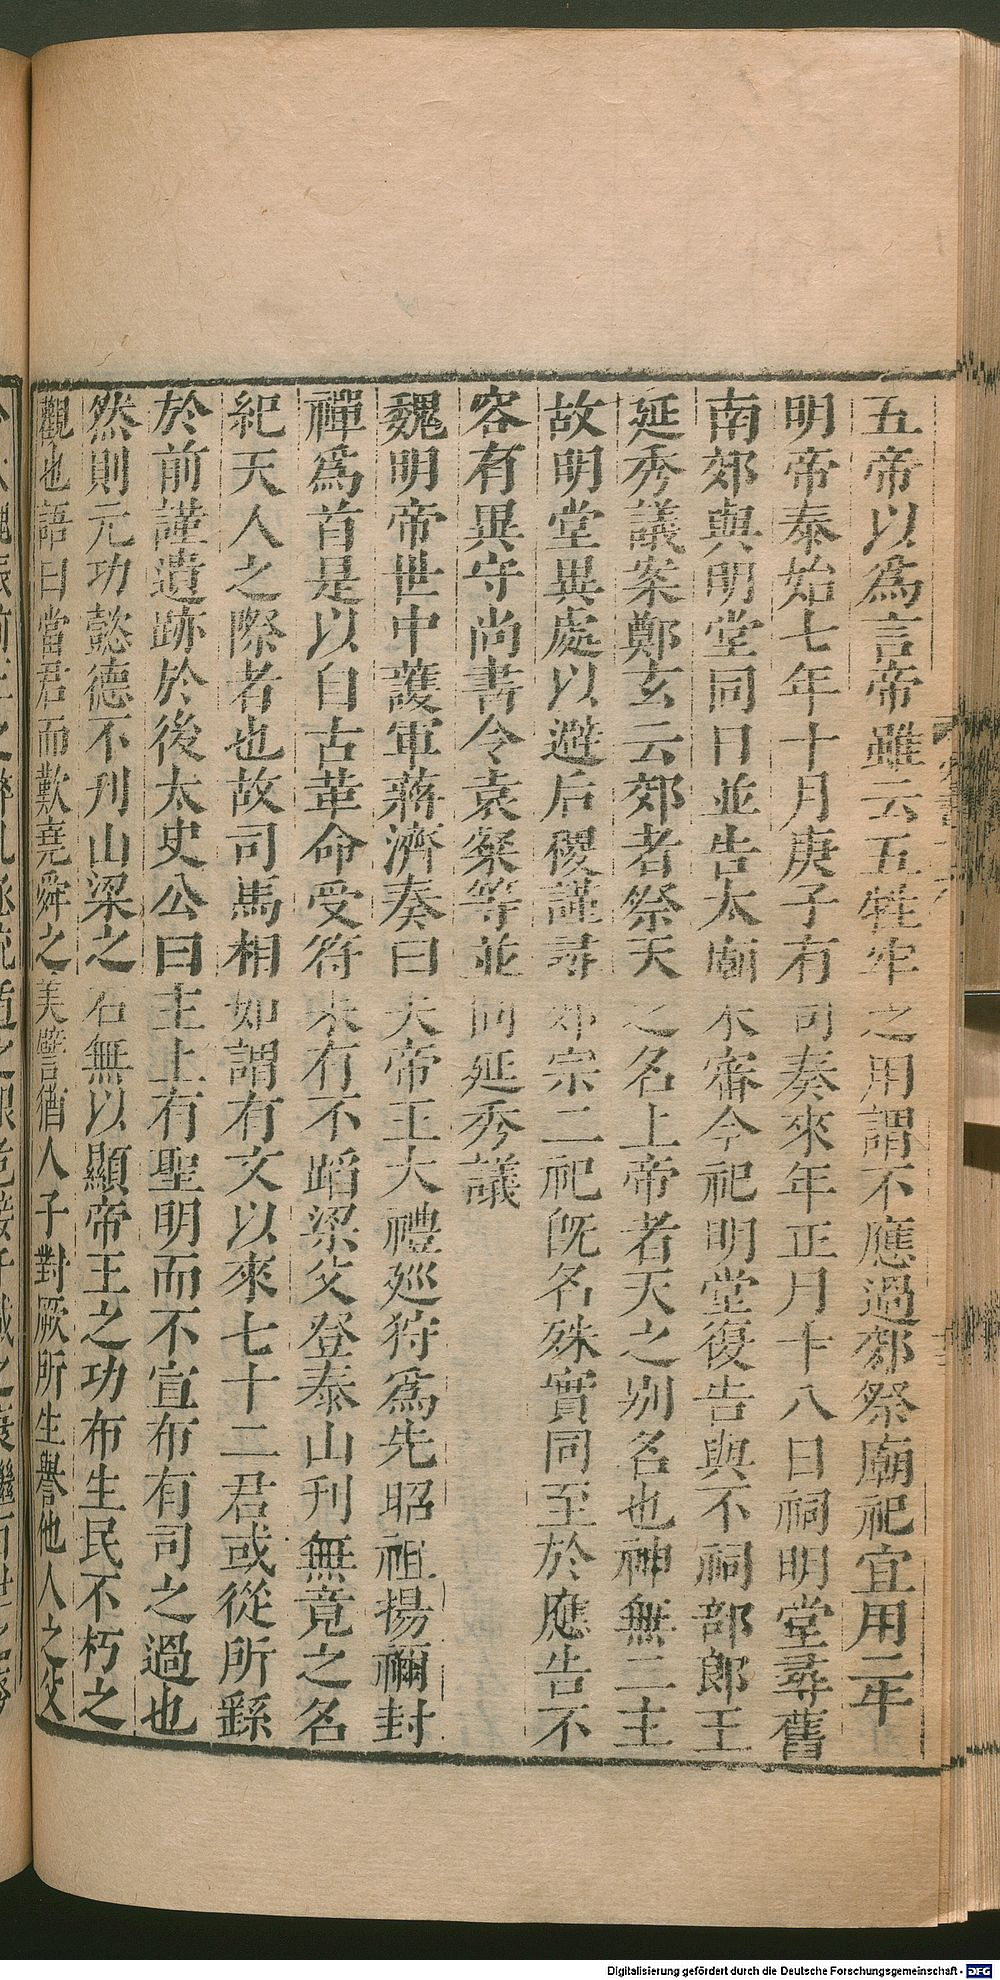 五帝以爲言帝雖云五牲牢之用謂不應過郊祭廟祀宜用二牛
明帝泰始七年十月庚子有司奏來年正月十八日祠明堂尋舊
南郊與明堂同日並告太廟未審今祀明堂復告與不祠部郎王
延秀議案鄭玄云郊者祭天之名上帝者天之別名也神無二主
故明堂異處以避后稷謹尋郊宗二祀旣名殊實同至於應告不
容有異守尚書令袁粲等並同延秀議
魏明帝世中護軍蔣濟奏曰夫帝王大禮巡狩爲先昭祖揚禰封
禪爲首是以自古革命受符未有不蹈梁父登泰山刊無竟之名
紀天人之際者也故司馬相如謂有文以來七十二君或從所繇
於前謹遺跡於後太史公曰主上有聖明而不宣布有司之過也
然則元功懿德不刊山梁之石無以顯帝王之功布生民不朽之
觀也語曰當君而歎堯舜之美譬猶人子對厥所生譽他人之父
Digitalisierung gefördert durch die Deutsche Forschungsgemeinschaft - DFG